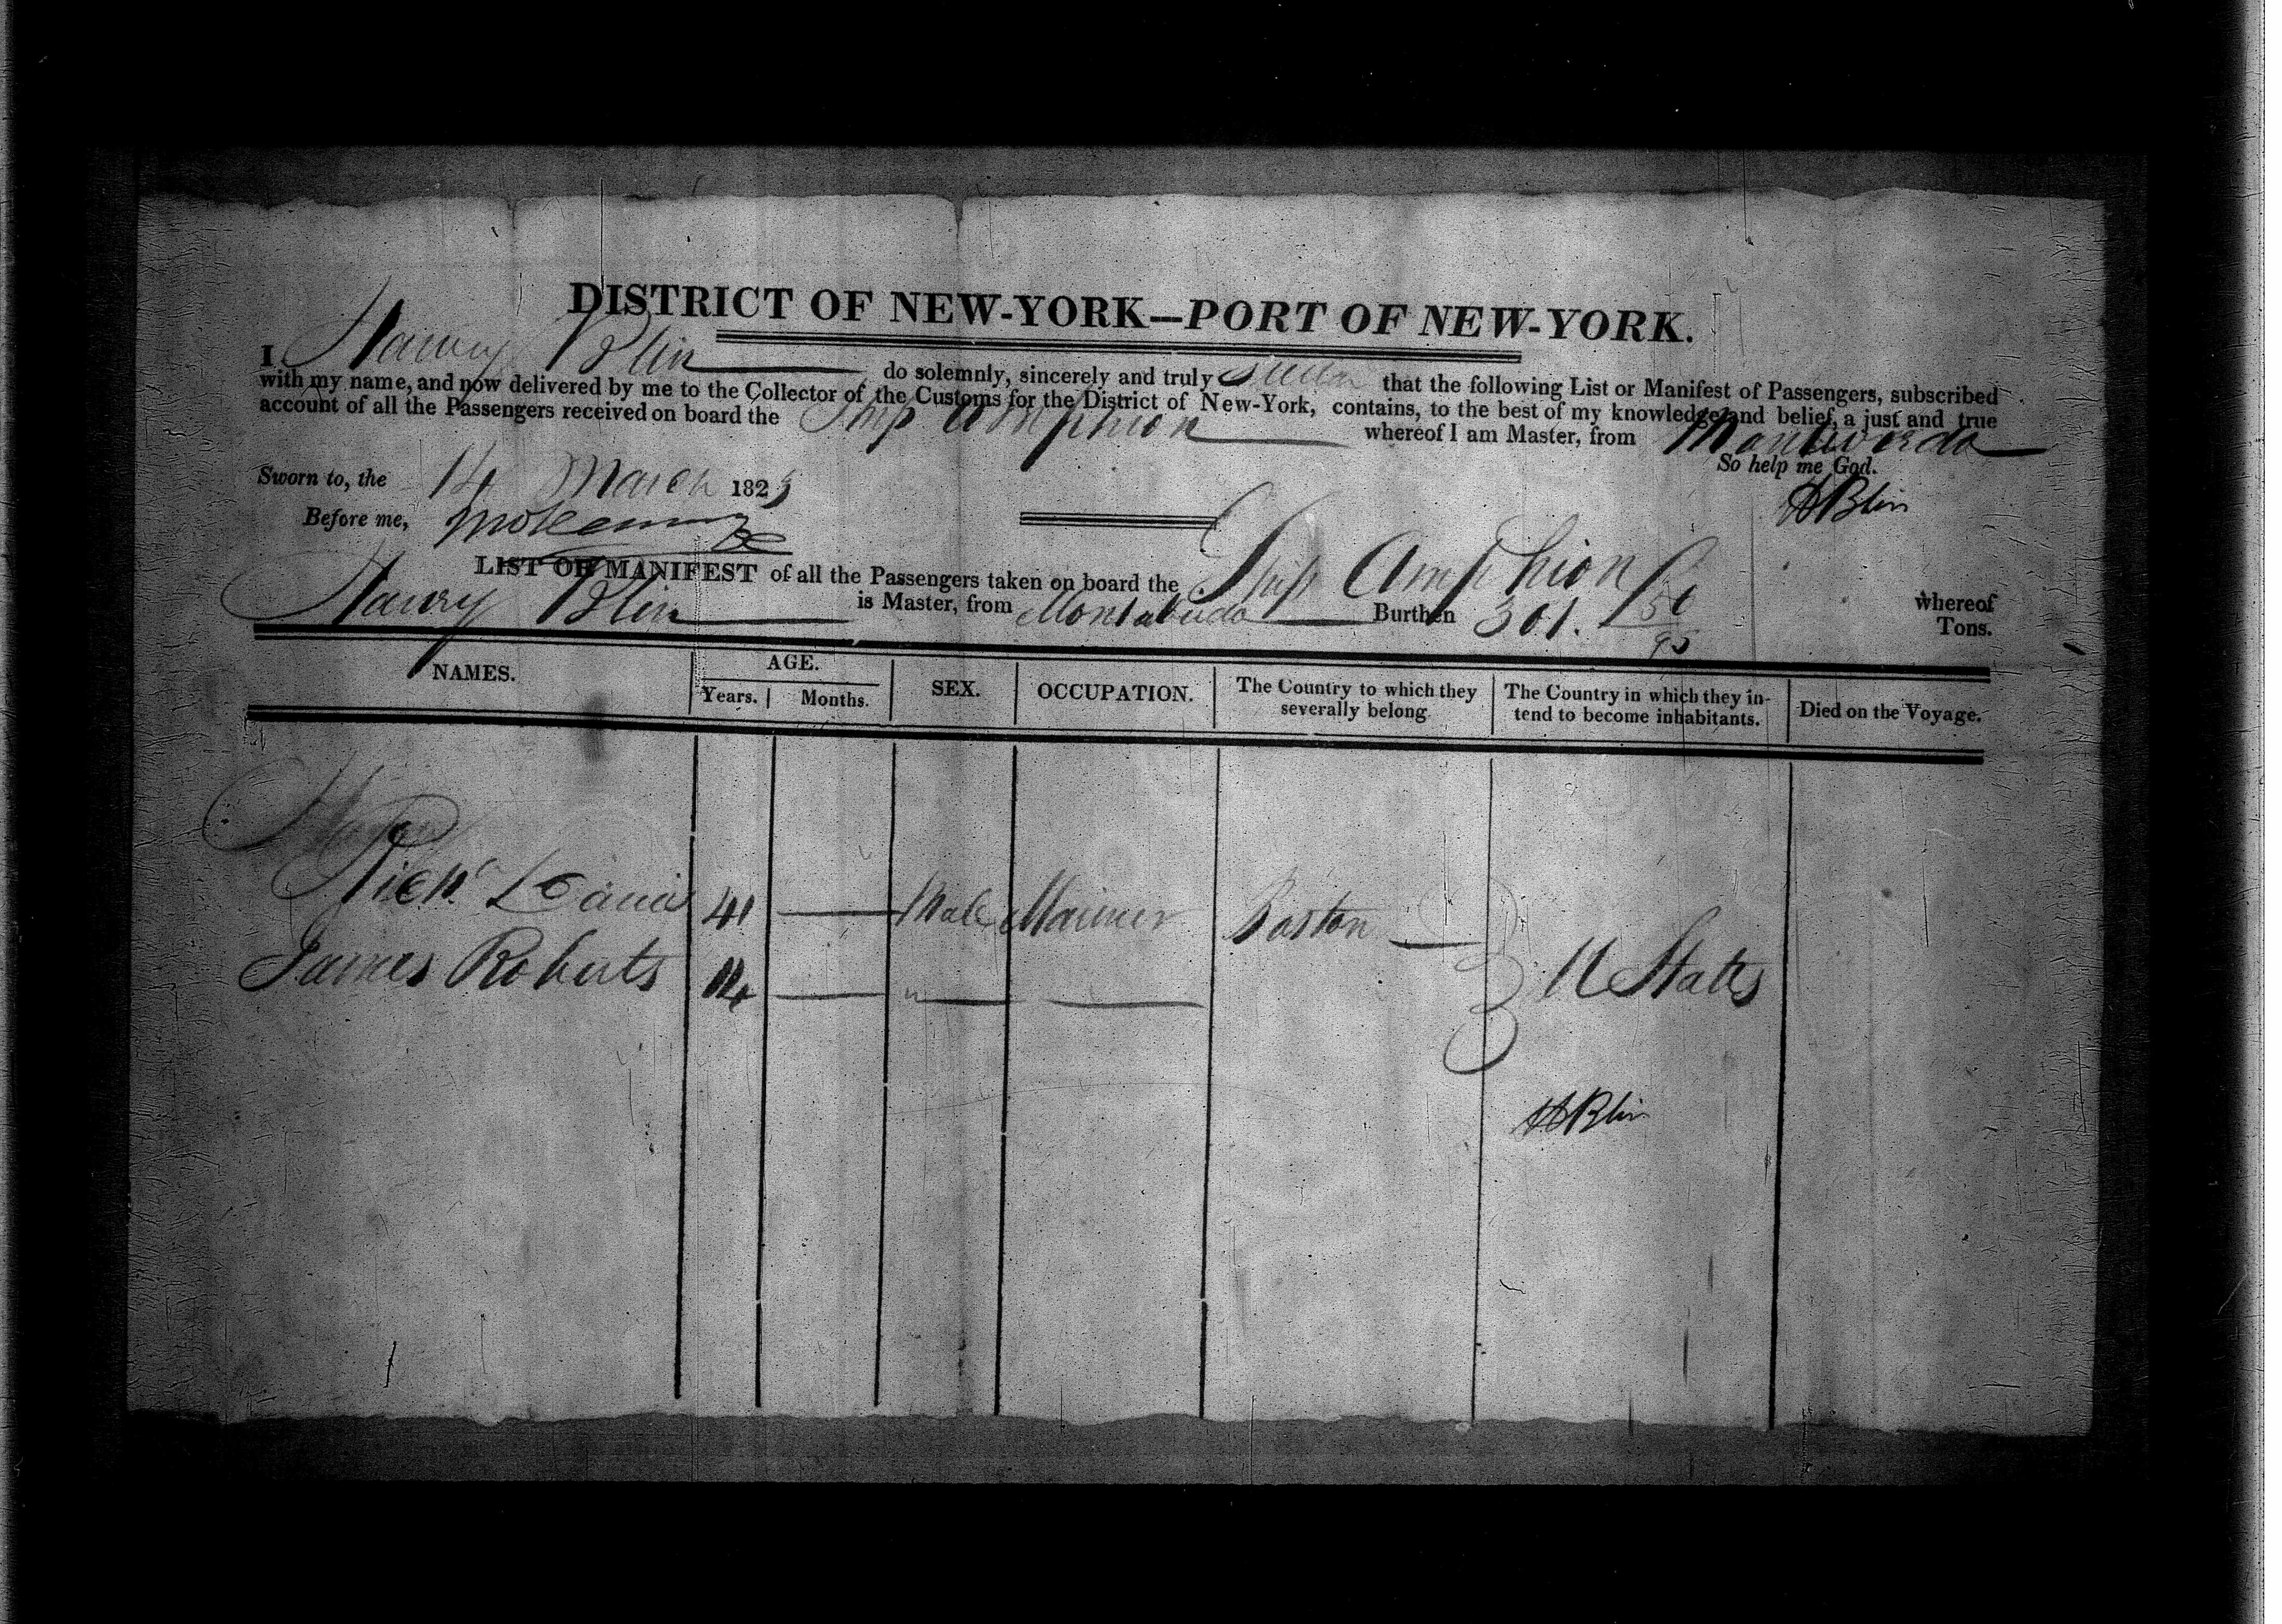 DISTRICT OF NEW-YORK—PORT OF NEW-YORK.
I Haury Blin do solemnly, sincerely and truly that the following List or Manifest of Passengers, subscribed
with my name, and now delivered by me to the Collector of the Customs for the District of New-York, contains, to the best of my knowledge and belief, a just and true
account of all the Passengers received on board the Ship Amphion whereof I am Master, from
So help me God.
Sworn to, the 14 March 1825
HBlin
Before me,
LIST OR MANIFEST of all the Passengers taken on board the Ship Amphion whereof
Haury Blin is Master, from Burthen 301. 50/95 Tons.
NAMES. AGE. SEX. OCCUPATION. The Country to which they severally belong. The Country in which they intend to become inhabitants. Died on the Voyage.
Years. Months.
Richd 41 — Male Mariner Boston —
James Roberts 14 — " — — U States
HBlin